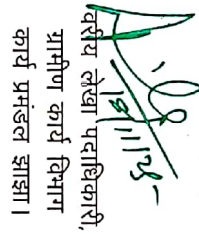 18/11/25
वरीय लेखा पदाधिकारी,
ग्रामीण कार्य विभाग
कार्य प्रमंडल झाझा।